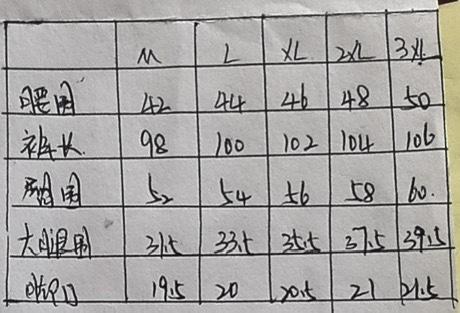 M L XL 2XL 3XL
腰围 42 44 46 48 50
裤长 98 100 102 104 106
臀围 52 54 56 58 60.
大腿围 31.5 33.5 35.5 37.5 39.5
脚口 19.5 20 20.5 21 21.5